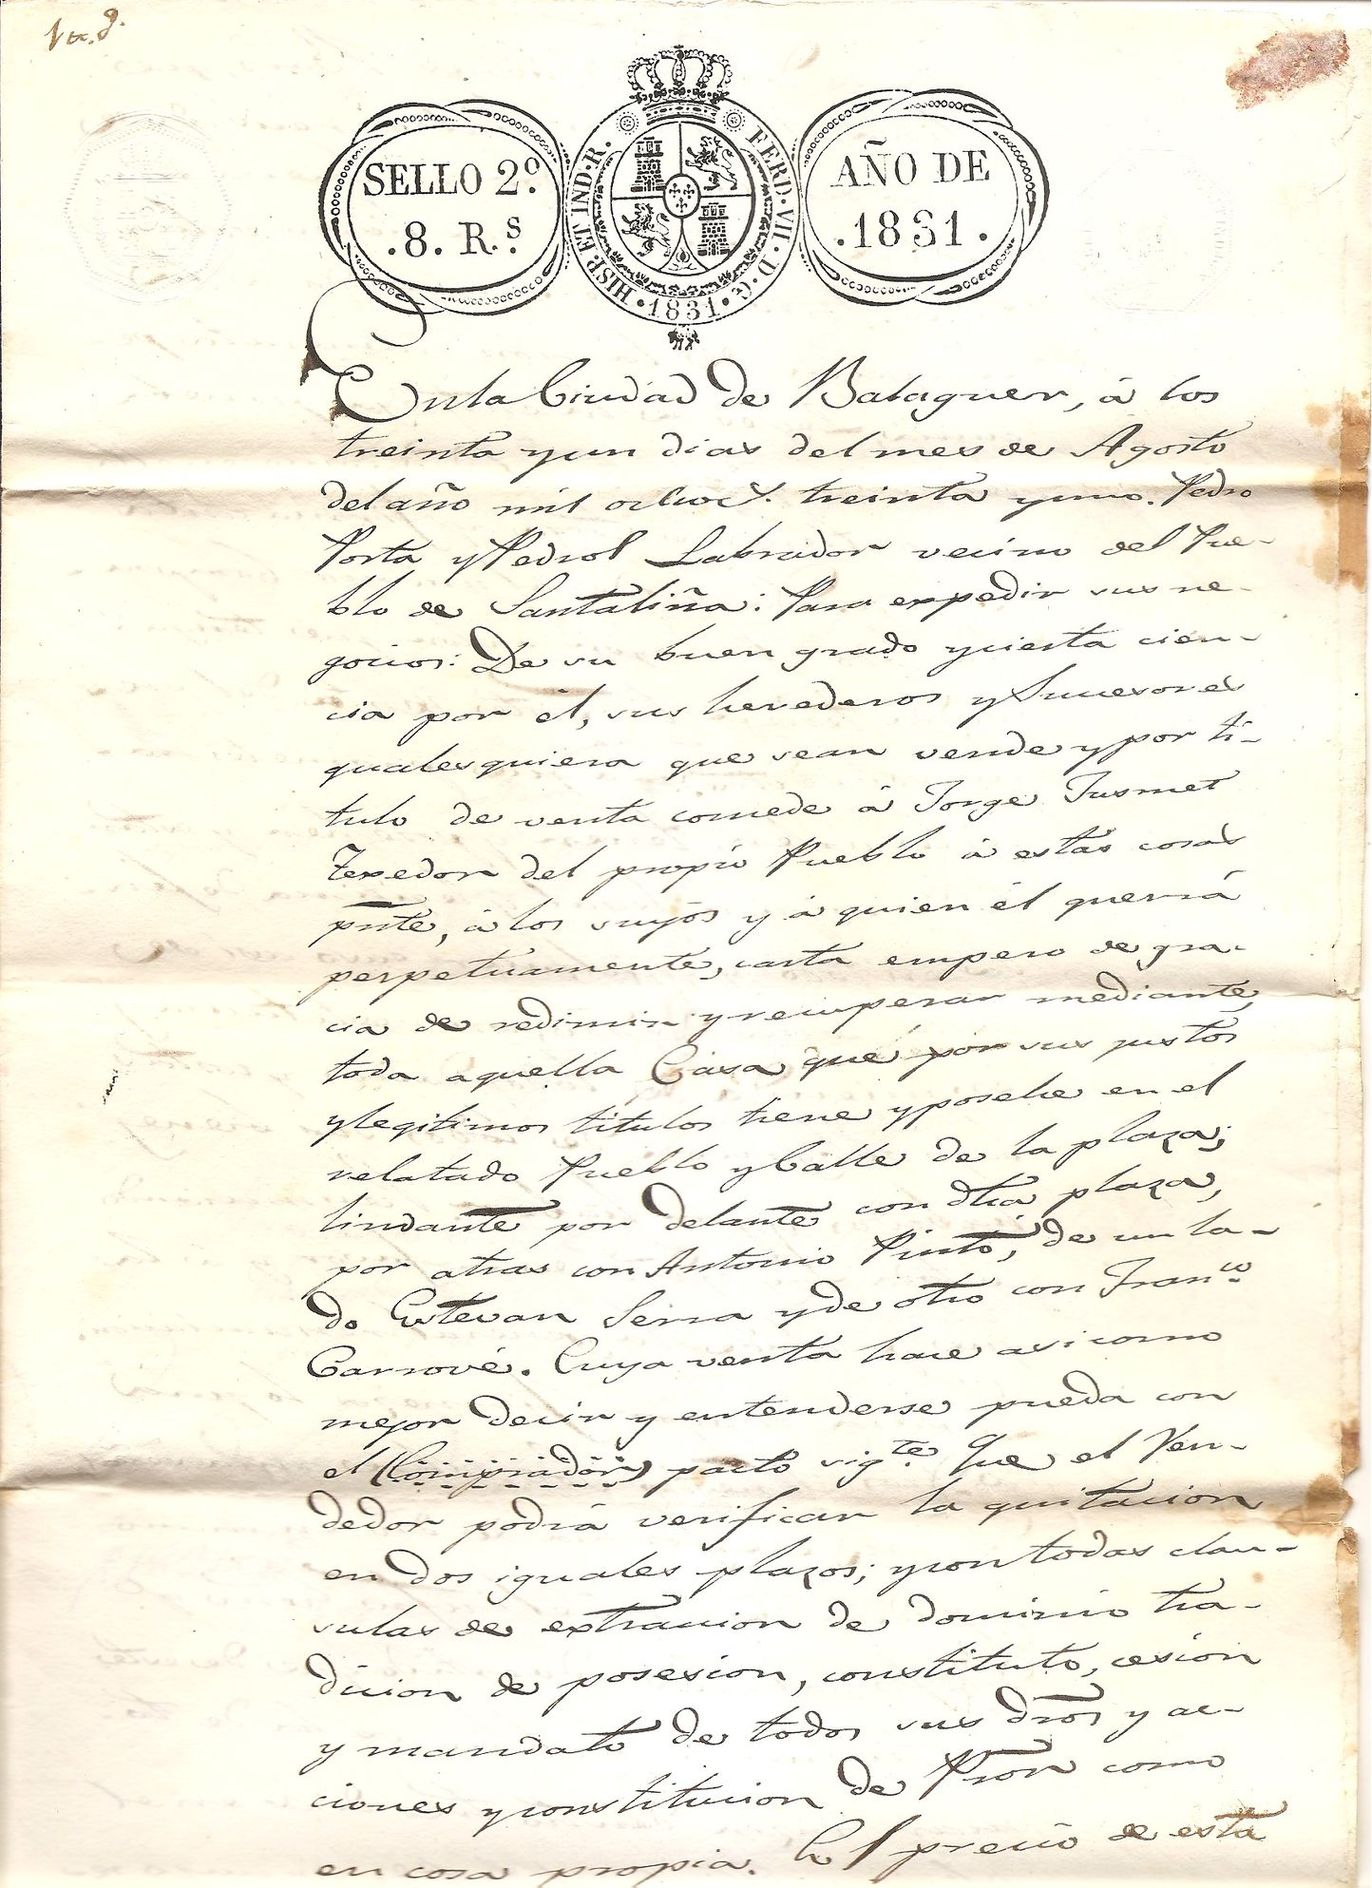 SELLO 2º.
.8. R.s
HISP. ET IND. R.
FERD. VII. D. G.
·1831·
AÑO DE
.1831.
En la Ciudad de Balaguer, á los
treinta y un dias del mes de Agosto
del año mil ochoct. treinta y uno. Pedro
Porta y Pedrol Labrador vecino del Pue-
blo de Santaliña: Para expedir sus ne-
gocios: De su buen grado y cierta cien-
cia por él, sus herederos y Sucesores
qualesquiera que sean vende y por ti-
tulo de venta concede á Jorge Jusmet
Texedor del propio Pueblo á estas cosas
pnte, á los suyos y á quien él querrá
perpetuamente, carta empero de gra-
cia de redimir y recuperar mediante,
toda aquella Casa que por sus justos
y legitimos titulos tiene y posehe en el
relatado Pueblo y Calle de la plaza;
lindante por delante con dha plaza,
por atras con Antonio Pinto, de un la-
do Estevan Serra y de otro con Franco.
Carrové. Cuya venta hace asi como
mejor decir y entenderse pueda con
el (Comprador) pacto sigte. Que el Ven-
dedor podrá verificar la quitacion
en dos iguales plazos; y con todas clau-
sulas de extraccion de dominio tra-
dicion de posesion, constituto, cesion
y mandato de todos sus dros y ac-
ciones y constitucion de Pror como
en cosa propia. El precio de esta